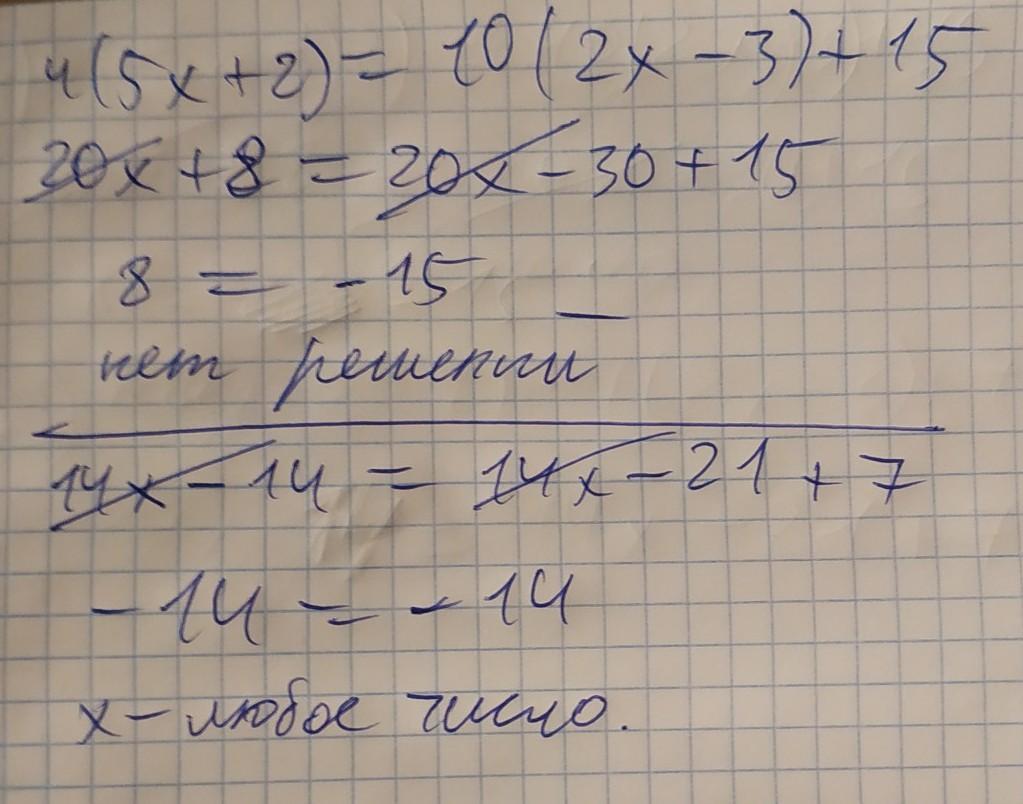 4(5x+2)= 10(2x-3)+15
20x+8 = 20x-30+15
8 = -15
нет решений
14x-14 = 14x-21+7
-14 = -14
x-любое число.